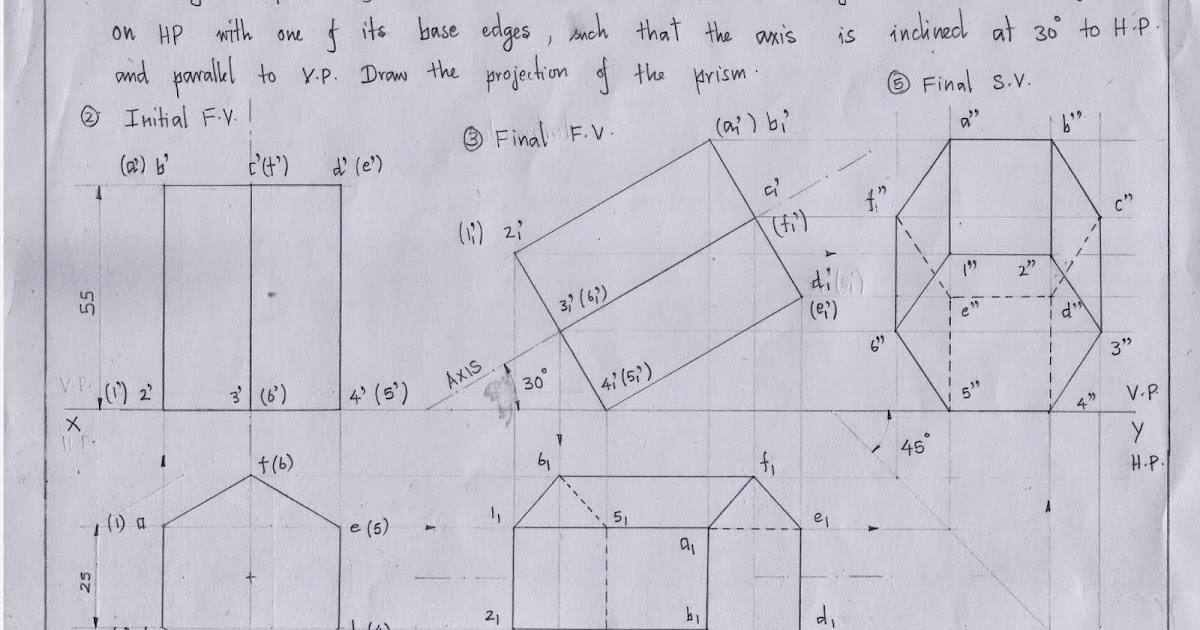 on HP with one of its base edges, such that the axis is inclined at 30° to H.P.
and parallel to V.P. Draw the projection of the prism.
② Initial F.V.
③ Final F.V.
⑤ Final S.V.
(a') b' c'(f') d' (e')
55
V.P.
(1') 2' 3' (6') 4' (5')
X
H.P.
(a₁') b₁'
c₁'
(f₁')
(1₁') 2₁'
d₁'
(e₁')
3₁' (6₁')
AXIS
30°
4₁' (5₁')
a" b"
f₁" c"
1" 2"
e" d"
6" 3"
5" 4"
V.P.
Y
H.P.
45°
f(6)
(1) a e (5)
25
6₁ f₁
1₁ 5₁ e₁
a₁
2₁ b₁ d₁